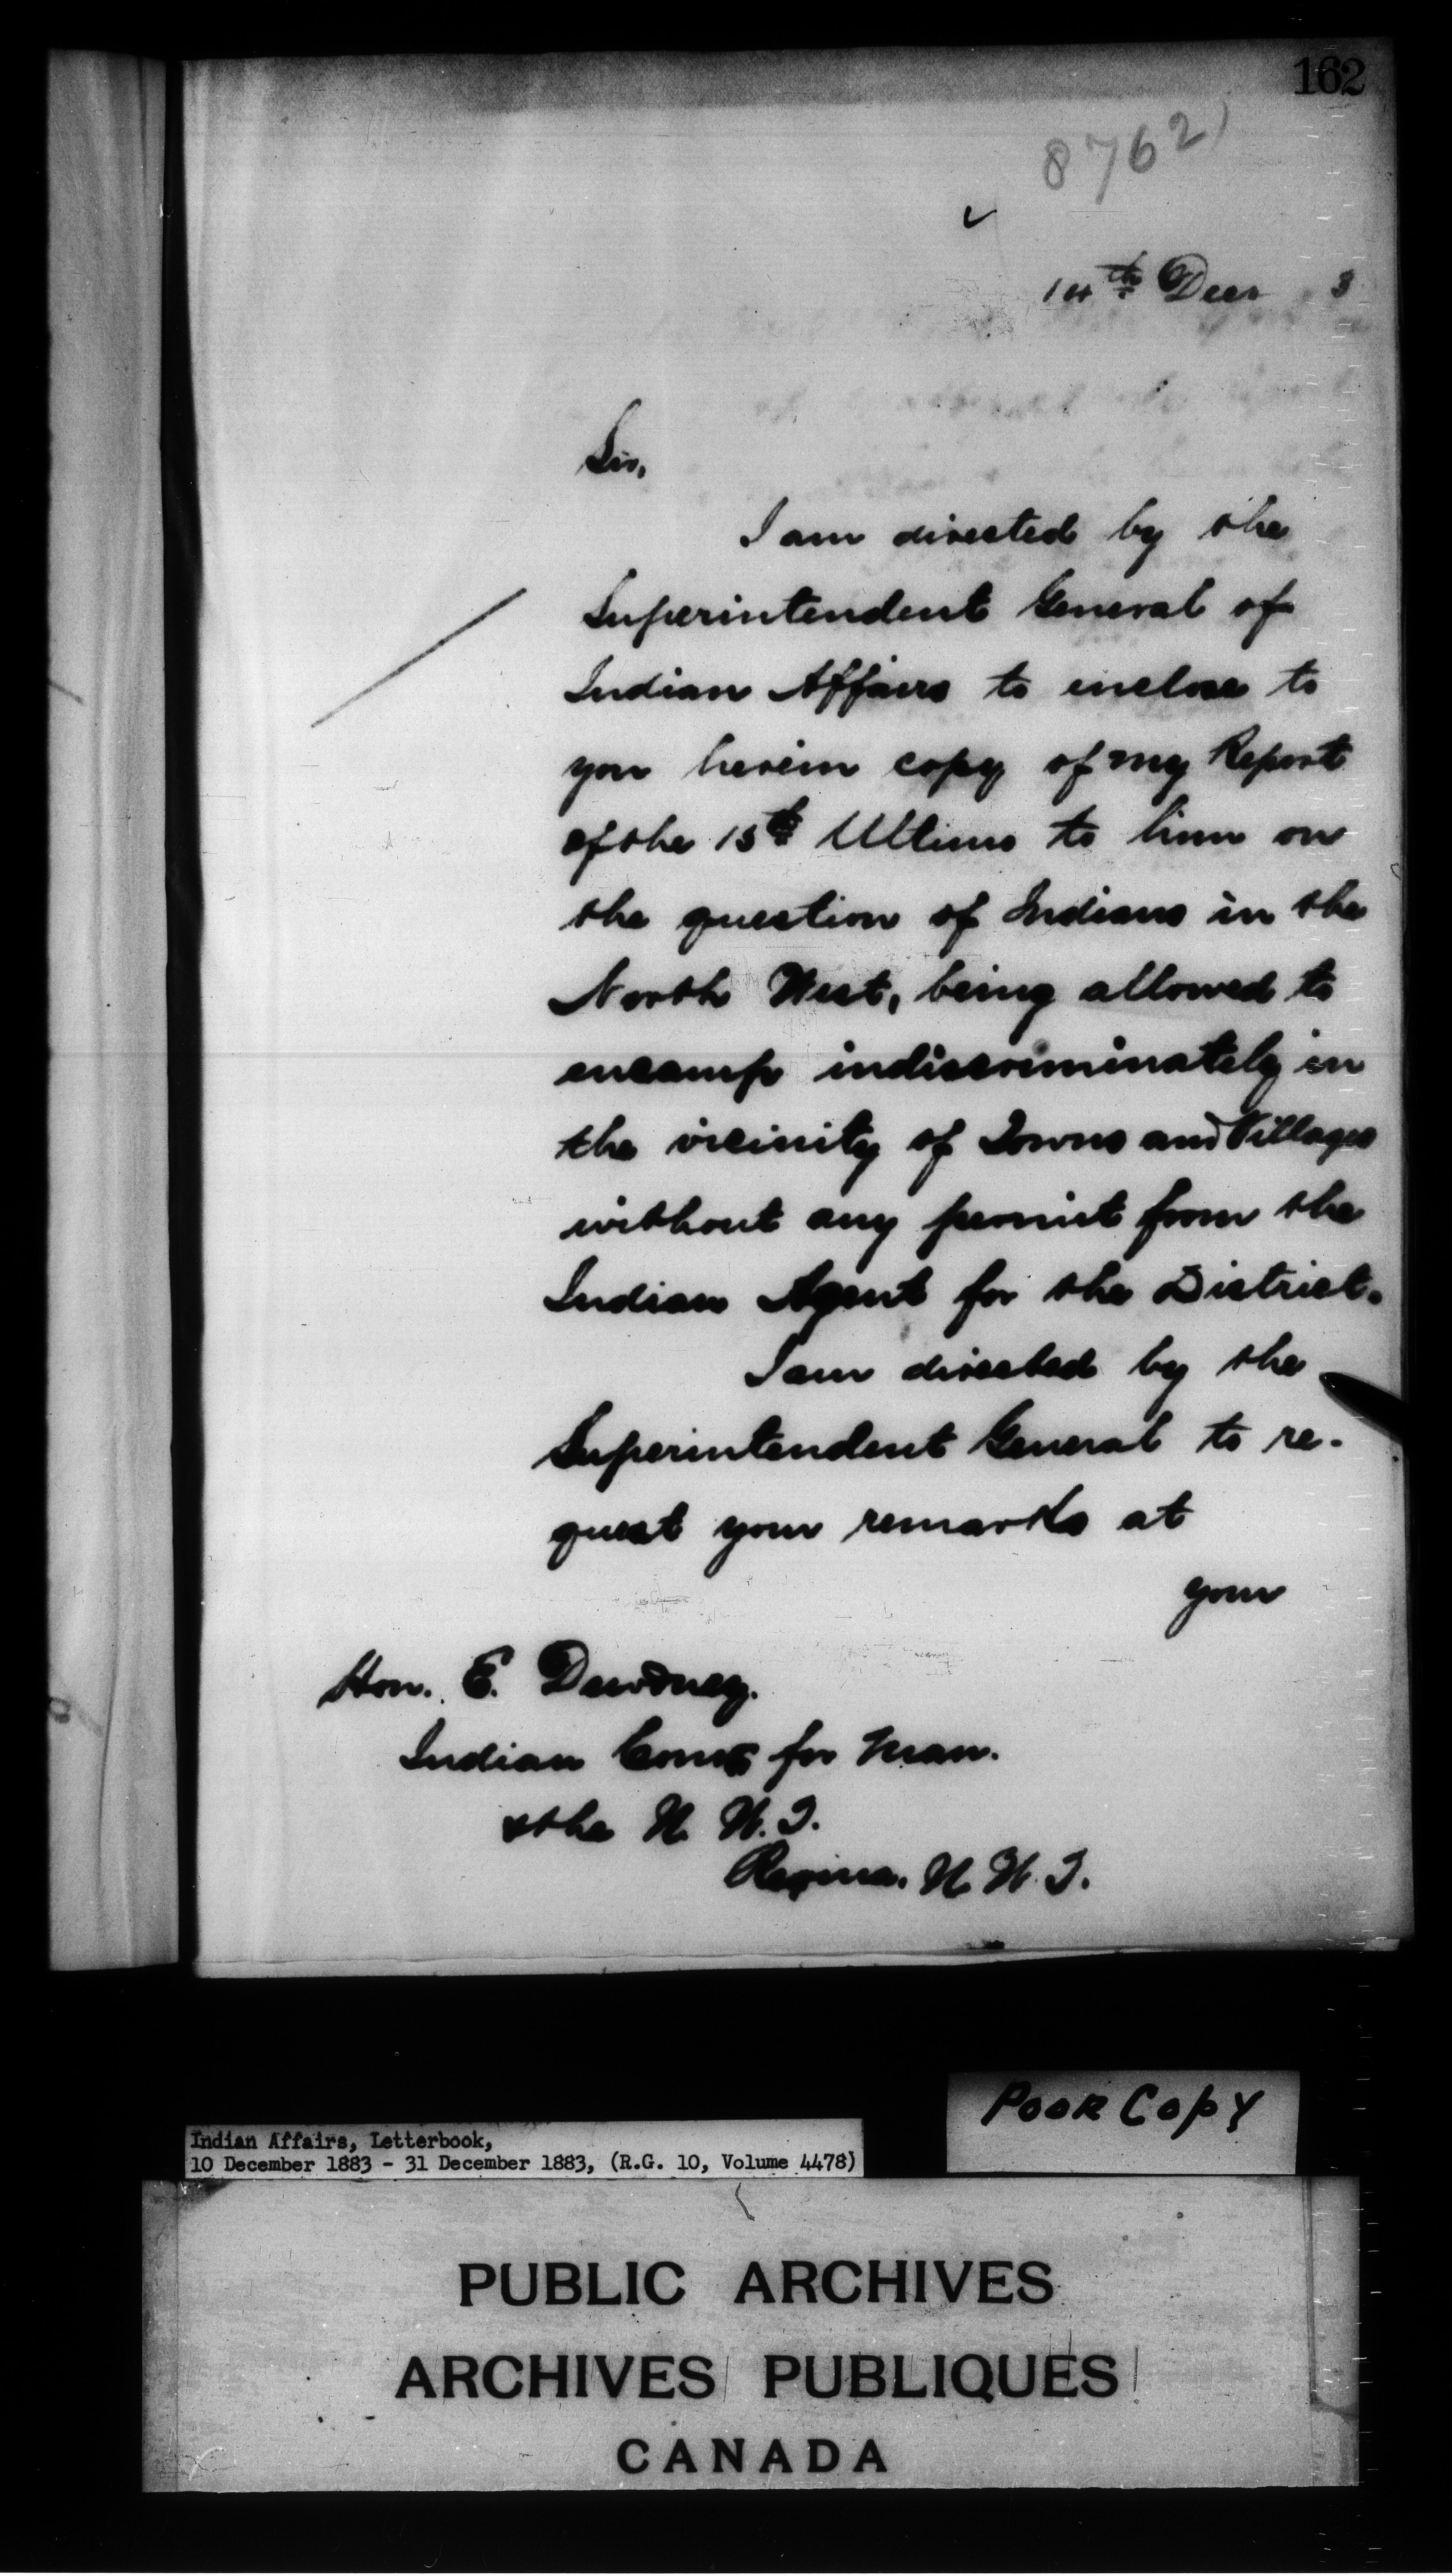 162
8762
14th Decr 3
Sir,
I am directed by the
Superintendent General of
Indian Affairs to enclose to
you herein copy of my Report
of the 15th Ultimo to him on
the question of Indians in the
North West, being allowed to
encamp indiscriminately in
the vicinity of Towns and Villages
without any permit from the
Indian Agent for the District.
I am directed by the
Superintendent General to re-
quest your remarks at
your
Hon. E. Dewdney.
Indian Comr for Man.
& the N. W. T.
Regina. N. W. T.
Poor Copy
Indian Affairs, Letterbook,
10 December 1883 - 31 December 1883, (R.G. 10, Volume 4478)
PUBLIC ARCHIVES
ARCHIVES PUBLIQUES
CANADA